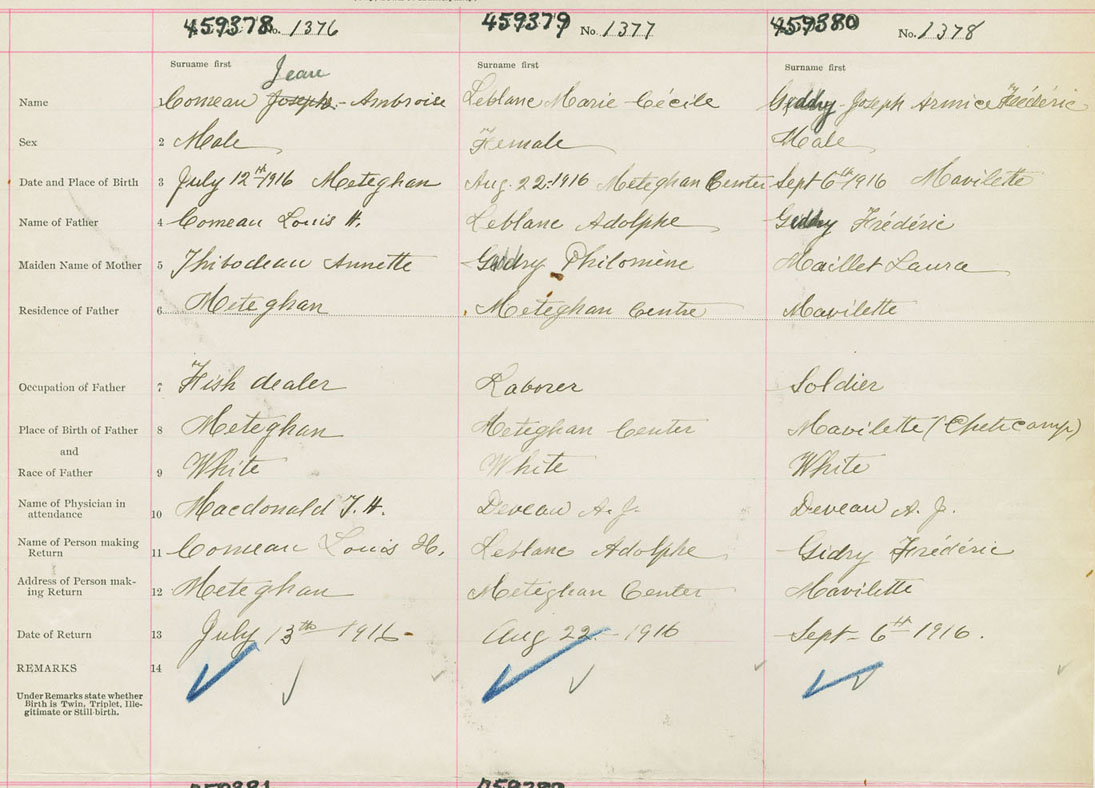 459378 No. 1376 459379 No. 1377 459380 No. 1378
Surname first Jean Surname first Surname first
Name 1 Comeau Joseph - Ambroise Leblanc Marie Cécile Joseph Armice Frédéric
Sex 2 Male Female Male
Date and Place of Birth 3 July 12th 1916 Meteghan Aug. 22-1916 Meteghan Center Sept 6th 1916 Mavilette
Name of Father 4 Comeau Louis H. Leblanc Adolphe Frédéric
Maiden Name of Mother 5 Thibodeau Annette Philomène Maillet Laura
Residence of Father 6 Meteghan Meteghan Centre Mavilette
Occupation of Father 7 Fish dealer Laborer Soldier
Place of Birth of Father 8 Meteghan Meteghan Center Mavilette (Cheticamp)
and
Race of Father 9 White White White
Name of Physician in
attendance 10 Macdonald T. H. Deveau A. J. Deveau A. J.
Name of Person making
Return 11 Comeau Louis H. Leblanc Adolphe Gidry Frédéric
Address of Person mak-
ing Return 12 Meteghan Meteghan Center Mavilette
Date of Return 13 July 13th 1916 Aug 22 - 1916 Sept - 6th 1916.
REMARKS 14
Under Remarks state whether
Birth is Twin, Triplet, Ille-
gitimate or Still-birth.